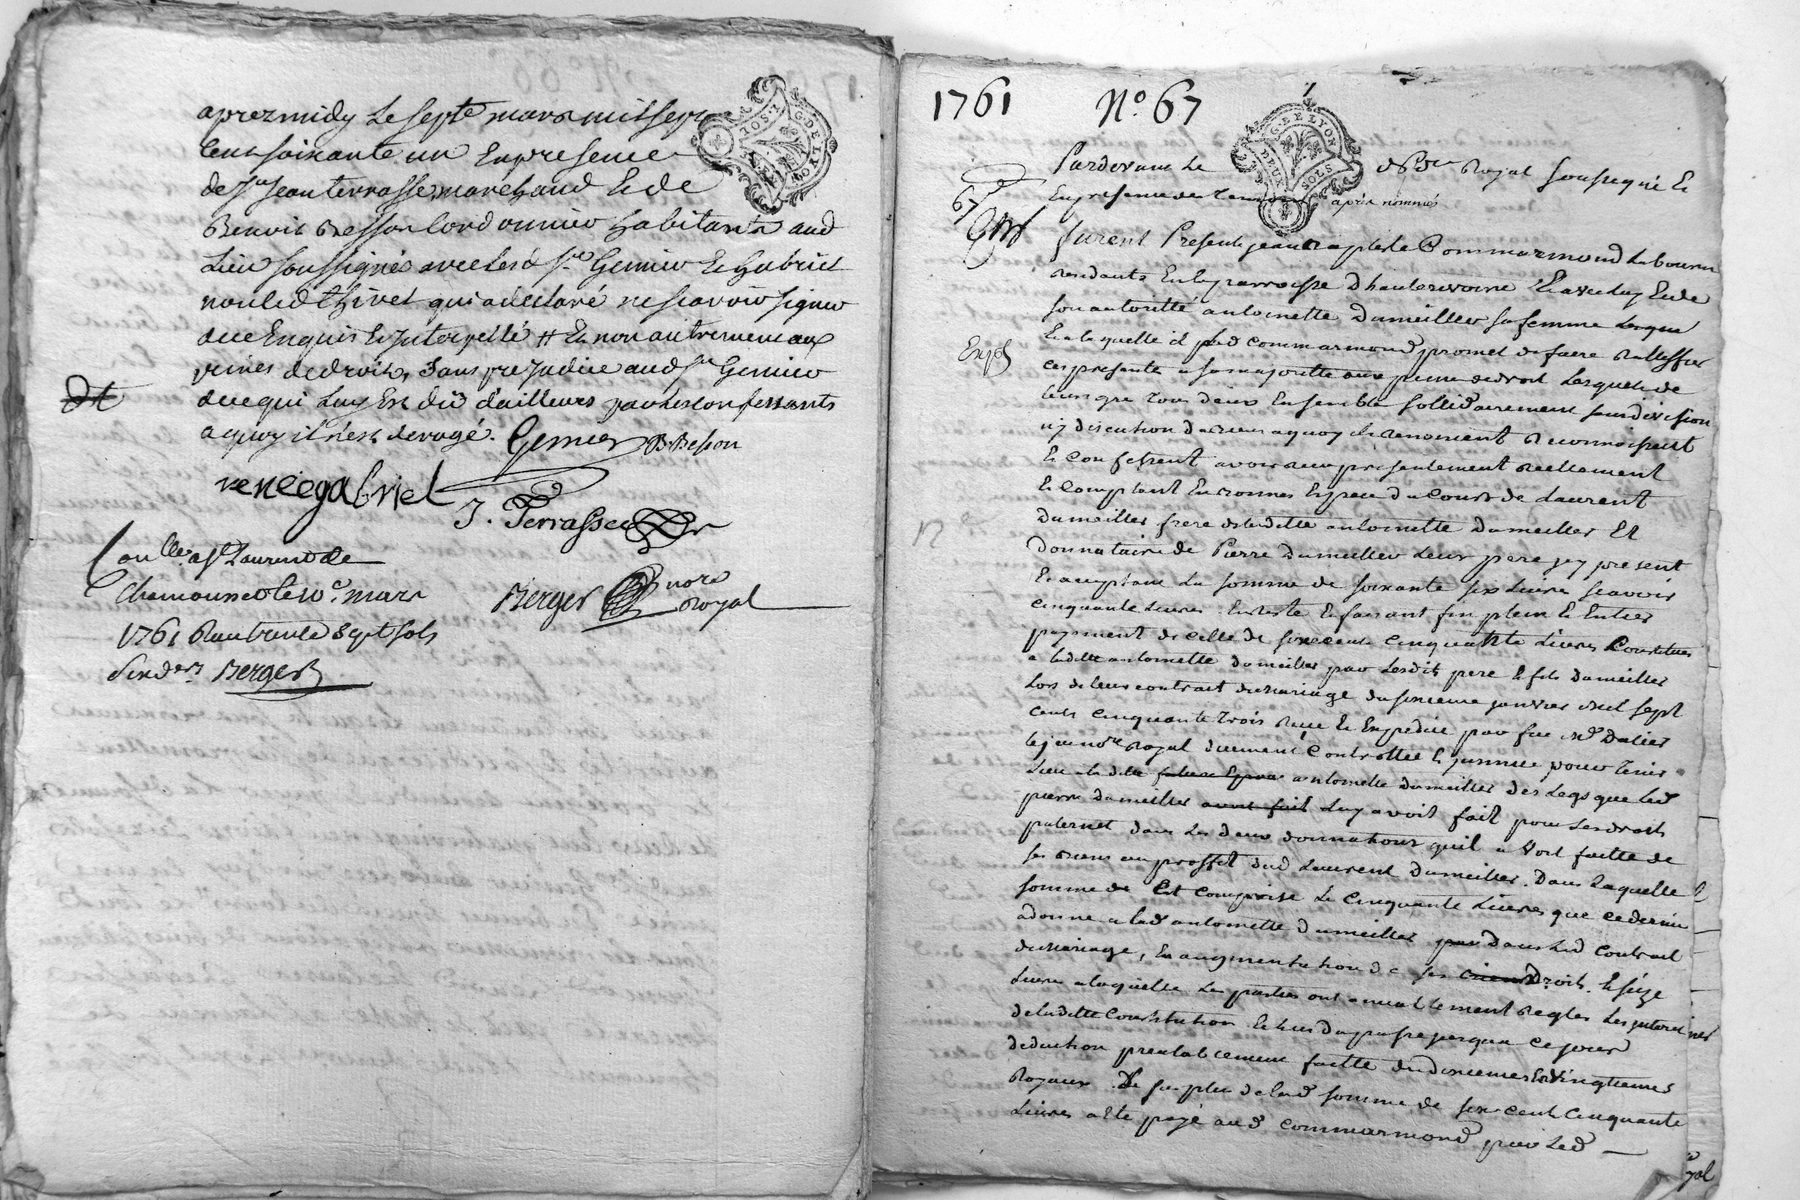 aprez midy le sept.e mars mil sept
Cent soixante un En presence
de s.r Jean terrasse marchand Et de
Benoit Besson Cordonnier habitants aud
Lieu soussignés avec les d s.r Genier Et Gabriel
non led thivel qui a declaré ne scavoir signer
de ce Enquis Et Interpellé # Et non autrement aux
peines de droit, Sans prejudice aud s.r Genier
de ce qui Luy Est dü d'ailleurs par les confessants
a quoy il n'est derogé. Genier B. Besson
renee gabriel
J. Terrasse
Con.llé a s.t Laurent de
Chamousset le 10.e mars
1761 Reçu trente Sept sols
Six d.ers Berger
Berger nore
Royal
G. DE LYON DEUX SOLS
1761 N.o 67
67
Pardevant Le no.re Royal soussigné Et
En presence des Temoins après nommés
furent Presents jean baptiste Commarmond Laboureur
residants En la parroisse d'hauterivoire Et avec luy Et de
son autorité antoinette Dumeillier sa femme Lesquels
Et a laquelle il led commarmond promet de faire Rattiffier
ces presente a sa majoritté aux peine de droit Lesquels de
leur gre Tous deux Ensemble sollidairement sans division
ny discution de biens a quoy ils renoncent Reconnoissent
Et Confessent avoir reçu présentement reellement
Et Comptant En bonnes Especes du Cours de Laurent
Dumeillier frere de laditte antoinette Dumeillier Et
Donnataire de Pierre Dumeillier Leur pere jcy present
Et acceptant La somme de soixante six Livres scavoir
cinquante Livres En reste Et faisant fin plein Et Entier
payement de celle de six cents cinquante Livres Constituée
a laditte antoinette dumeillier par Lesdits pere Et fils Dumeillier
Lors de leur contrat de Mariage du sixieme janvier mil sept
cents cinquante trois Reçu Et Expedié par feu M.e Dalier
le jeune no.re Royal duement Controllé Et jnsinué pour Tenir
Lieu a laditte antoinette dumeillier des Legs que led
pierre dumeillier Luy avoit fait pour ses droits
paternel dans Les deux donnations qu'il a Voit faitte de
ses Biens au proffit dud Laurent Dumeillier. Dans Laquelle
somme de Est comprise Le Cinquante Livres que ce dernier
a donné a lad antoinette Dumeillier dans Led Contrat
de Mariage, En augmentation de ses Droits. Et seize
Livres a laquelle Les parties ont amuablement Regler Les jnterets
de laditte Constitution Echus du passé jusqua ce jour
deduction prealablement faitte des dixiemes Et Vingtiemes
Royaux. Le surplus de lad somme de six cent Cinquante
Livres a Ete payé aud Commarmond par Led